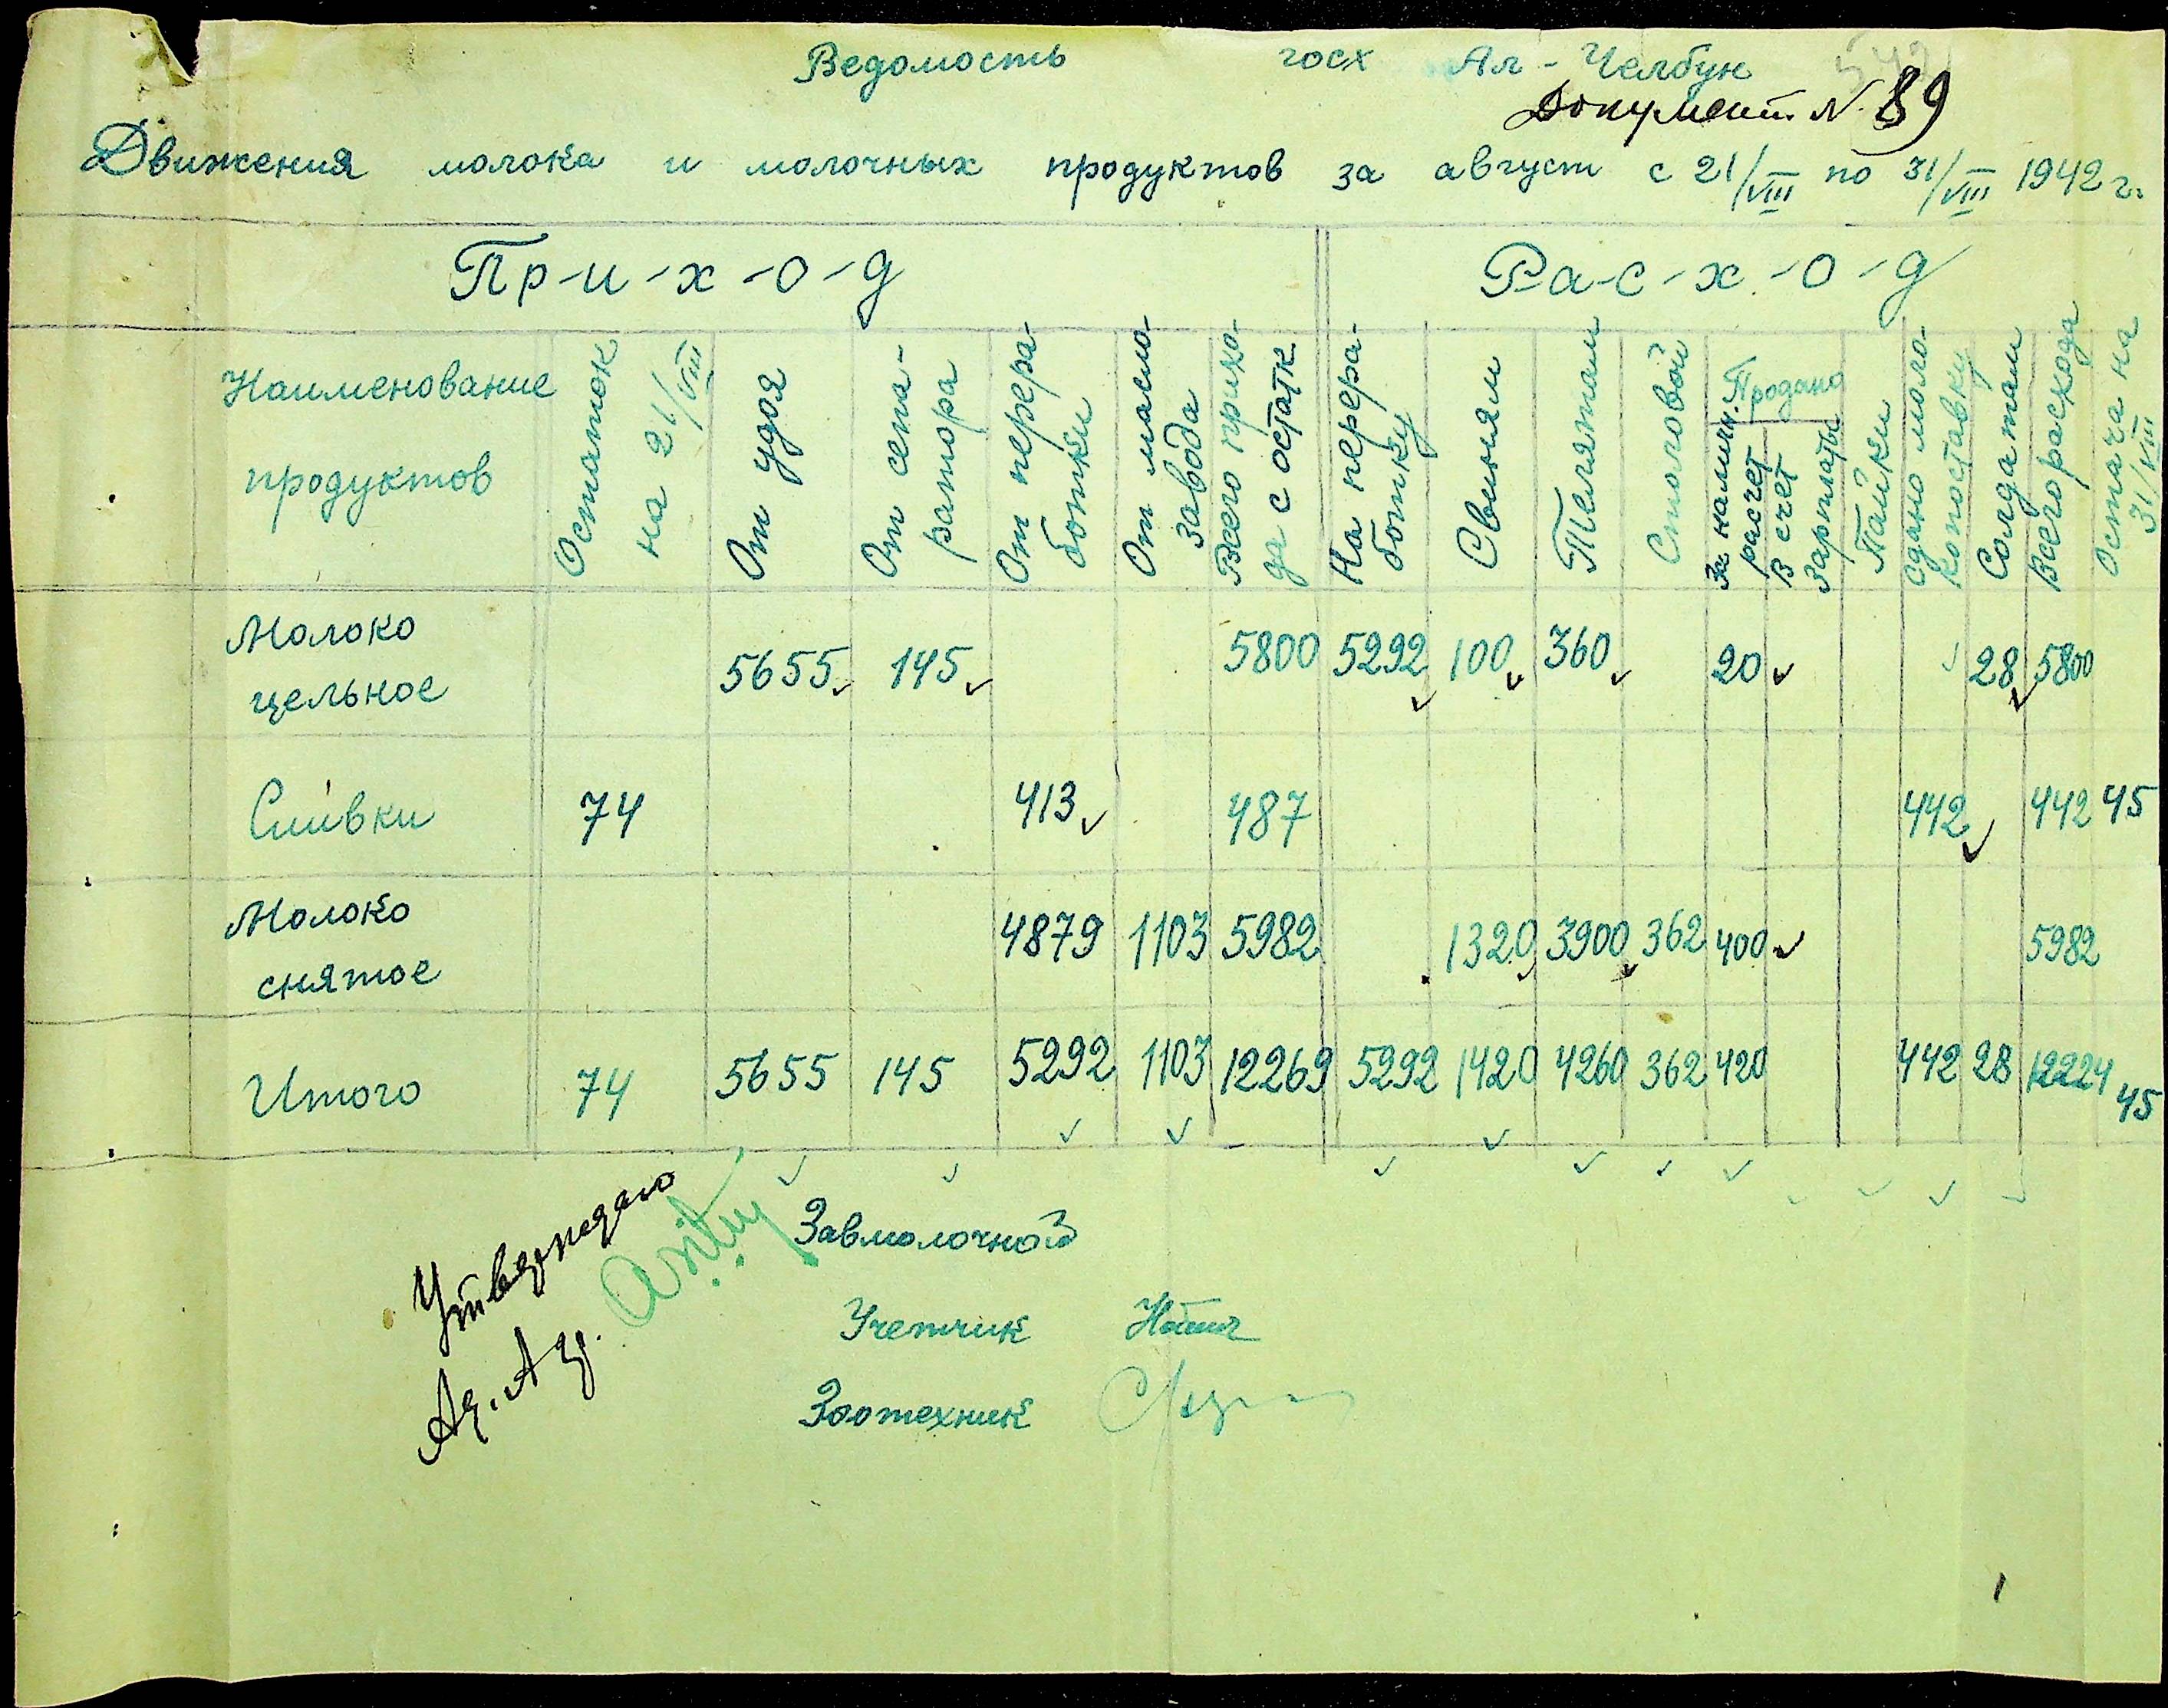 Ведомость госх Ал-Челбун
Документ N. 89
Движения молока и молочных продуктов за август с 21/VIII по 31/VIII 1942 г.
Пр-и-х-о-д Р-а-с-х-о-д
Наименование продуктов
Остаток на 21/VIII
От удоя
От сепа-
ратора
От перера-
ботки
От масло-
завода
Всего прихо-
да с остатк.
На перера-
ботку
Свиням
Телятам
Столовой
Продано
За наличн.
расчет
В счет
зарплаты
Пайки
Сдано моло-
копоставку
Солдатам
Всего расхода
Остача на
31/VIII
Молоко цельное 5655 145 5800 5292 100 360 20 28 5800
Сливки 74 413 487 442 442 45
Молоко снятое 4879 1103 5982 1320 3900 362 400 5982
Итого 74 5655 145 5292 1103 12269 5292 1420 4260 362 420 442 28 12224 45
Утверждаю
Завмолочной
Учетчик
Зоотехник